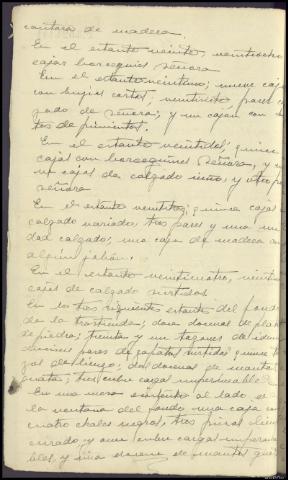 cantara de madera.
En el estante veinte, veintiocho
cajas borceguies señora
En el estante veintiuno; nueve cajas
con bujias cortas, veintiseis, pares
zado de señora; y un cajon con
tos de pimientos.
En el estante veintidos; quince
cajas con borceguines señora, y
cajas de calzado niño, y
señora
En el estante veintitres; quince cajas
calzado variado, tres pares y una
dad calzado; una caja de madera con
algun jabón.
En el estante veinticuatro, veinti
cajas de calzado surtidas
En los tres siguientes estantes del fondo
de la trastienda; doce docenas de
de piedra; treinta y un tazones de idem
diecisiete pares de zapatos surtidos
de lienzo; dos docenas de
tres cubre cargas impermeables
En una mesa al lado de
la ventana del fondo una caja con
cuatro chales negros, tres piezas lien
y una cubre cargas imperme
bles, y una docena de